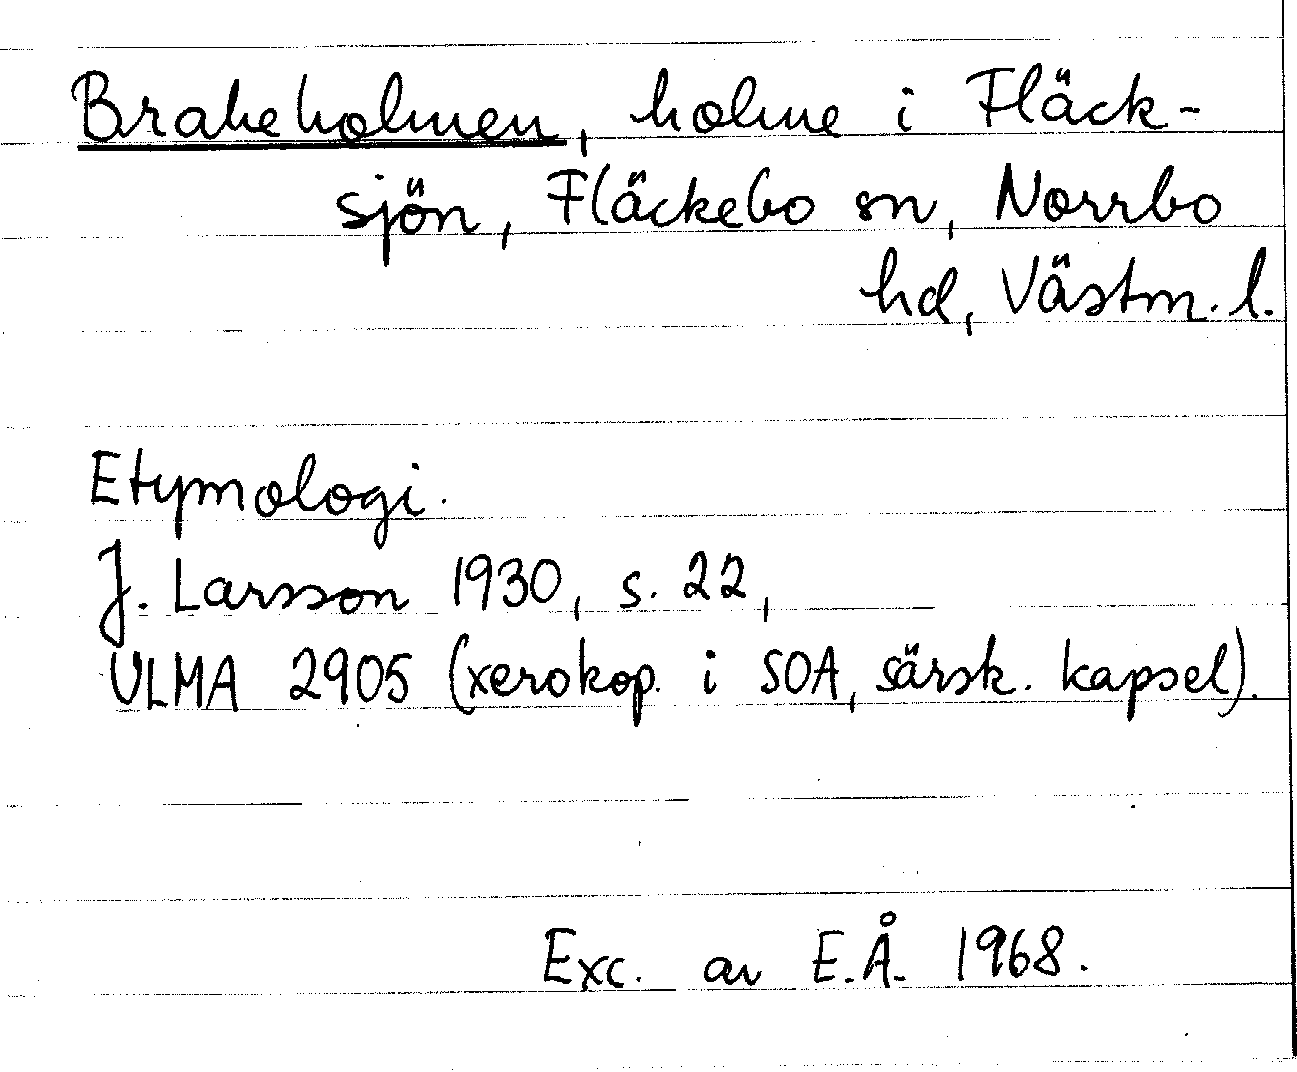 Braheholmen, holme i Fläck-
sjön, Fläckebo sn, Norrbo
hd, Västm. l.
Etymologi.
J. Larsson 1930, s. 22,
ULMA 2905 (xerokop. i SOA, särsk. kapsel).
Exc. av E.Å. 1968.